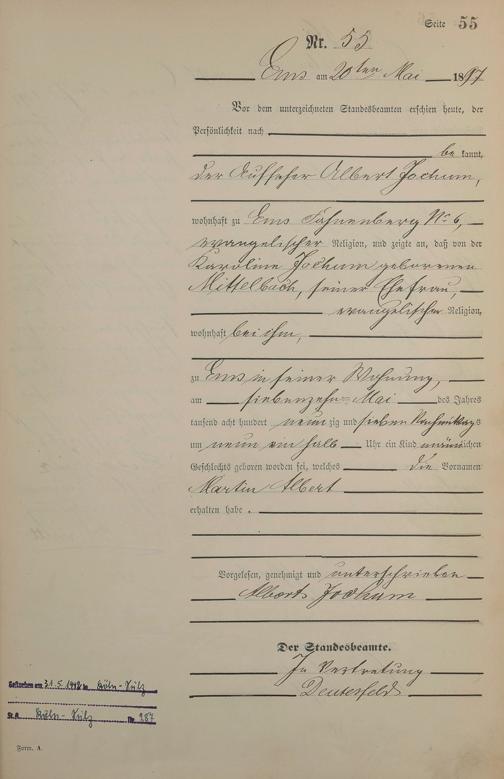 Seite 55
Nr. 55
Ems am 20ten Mai 1897
Vor dem unterzeichneten Standesbeamten erschien heute, der
Persönlichkeit nach
be kannt,
der Aufseher Albert Jochum,
wohnhaft zu Ems No 6,
evangelischer Religion, und zeigte an, daß von der
Karoline Jochum geborenen
Mittelbach, seiner Ehefrau,
evangelischer Religion,
wohnhaft bei ihm,
zu Ems in seiner Wohnung,
am siebenzehn Mai des Jahres
tausend acht hundert neun zig und sieben Nachmittags
um neun ein halb Uhr ein Kind männlichen
Geschlechts geboren worden sei, welches die Vornamen
Martin Albert
erhalten habe.
Vorgelesen, genehmigt und unterschrieben
Albert Jochum
Der Standesbeamte.
In Vertretung
Gestorben am 31.5.1942 in Köln-Sülz
St.A. Köln-Sülz Nr. 287
Form. A.